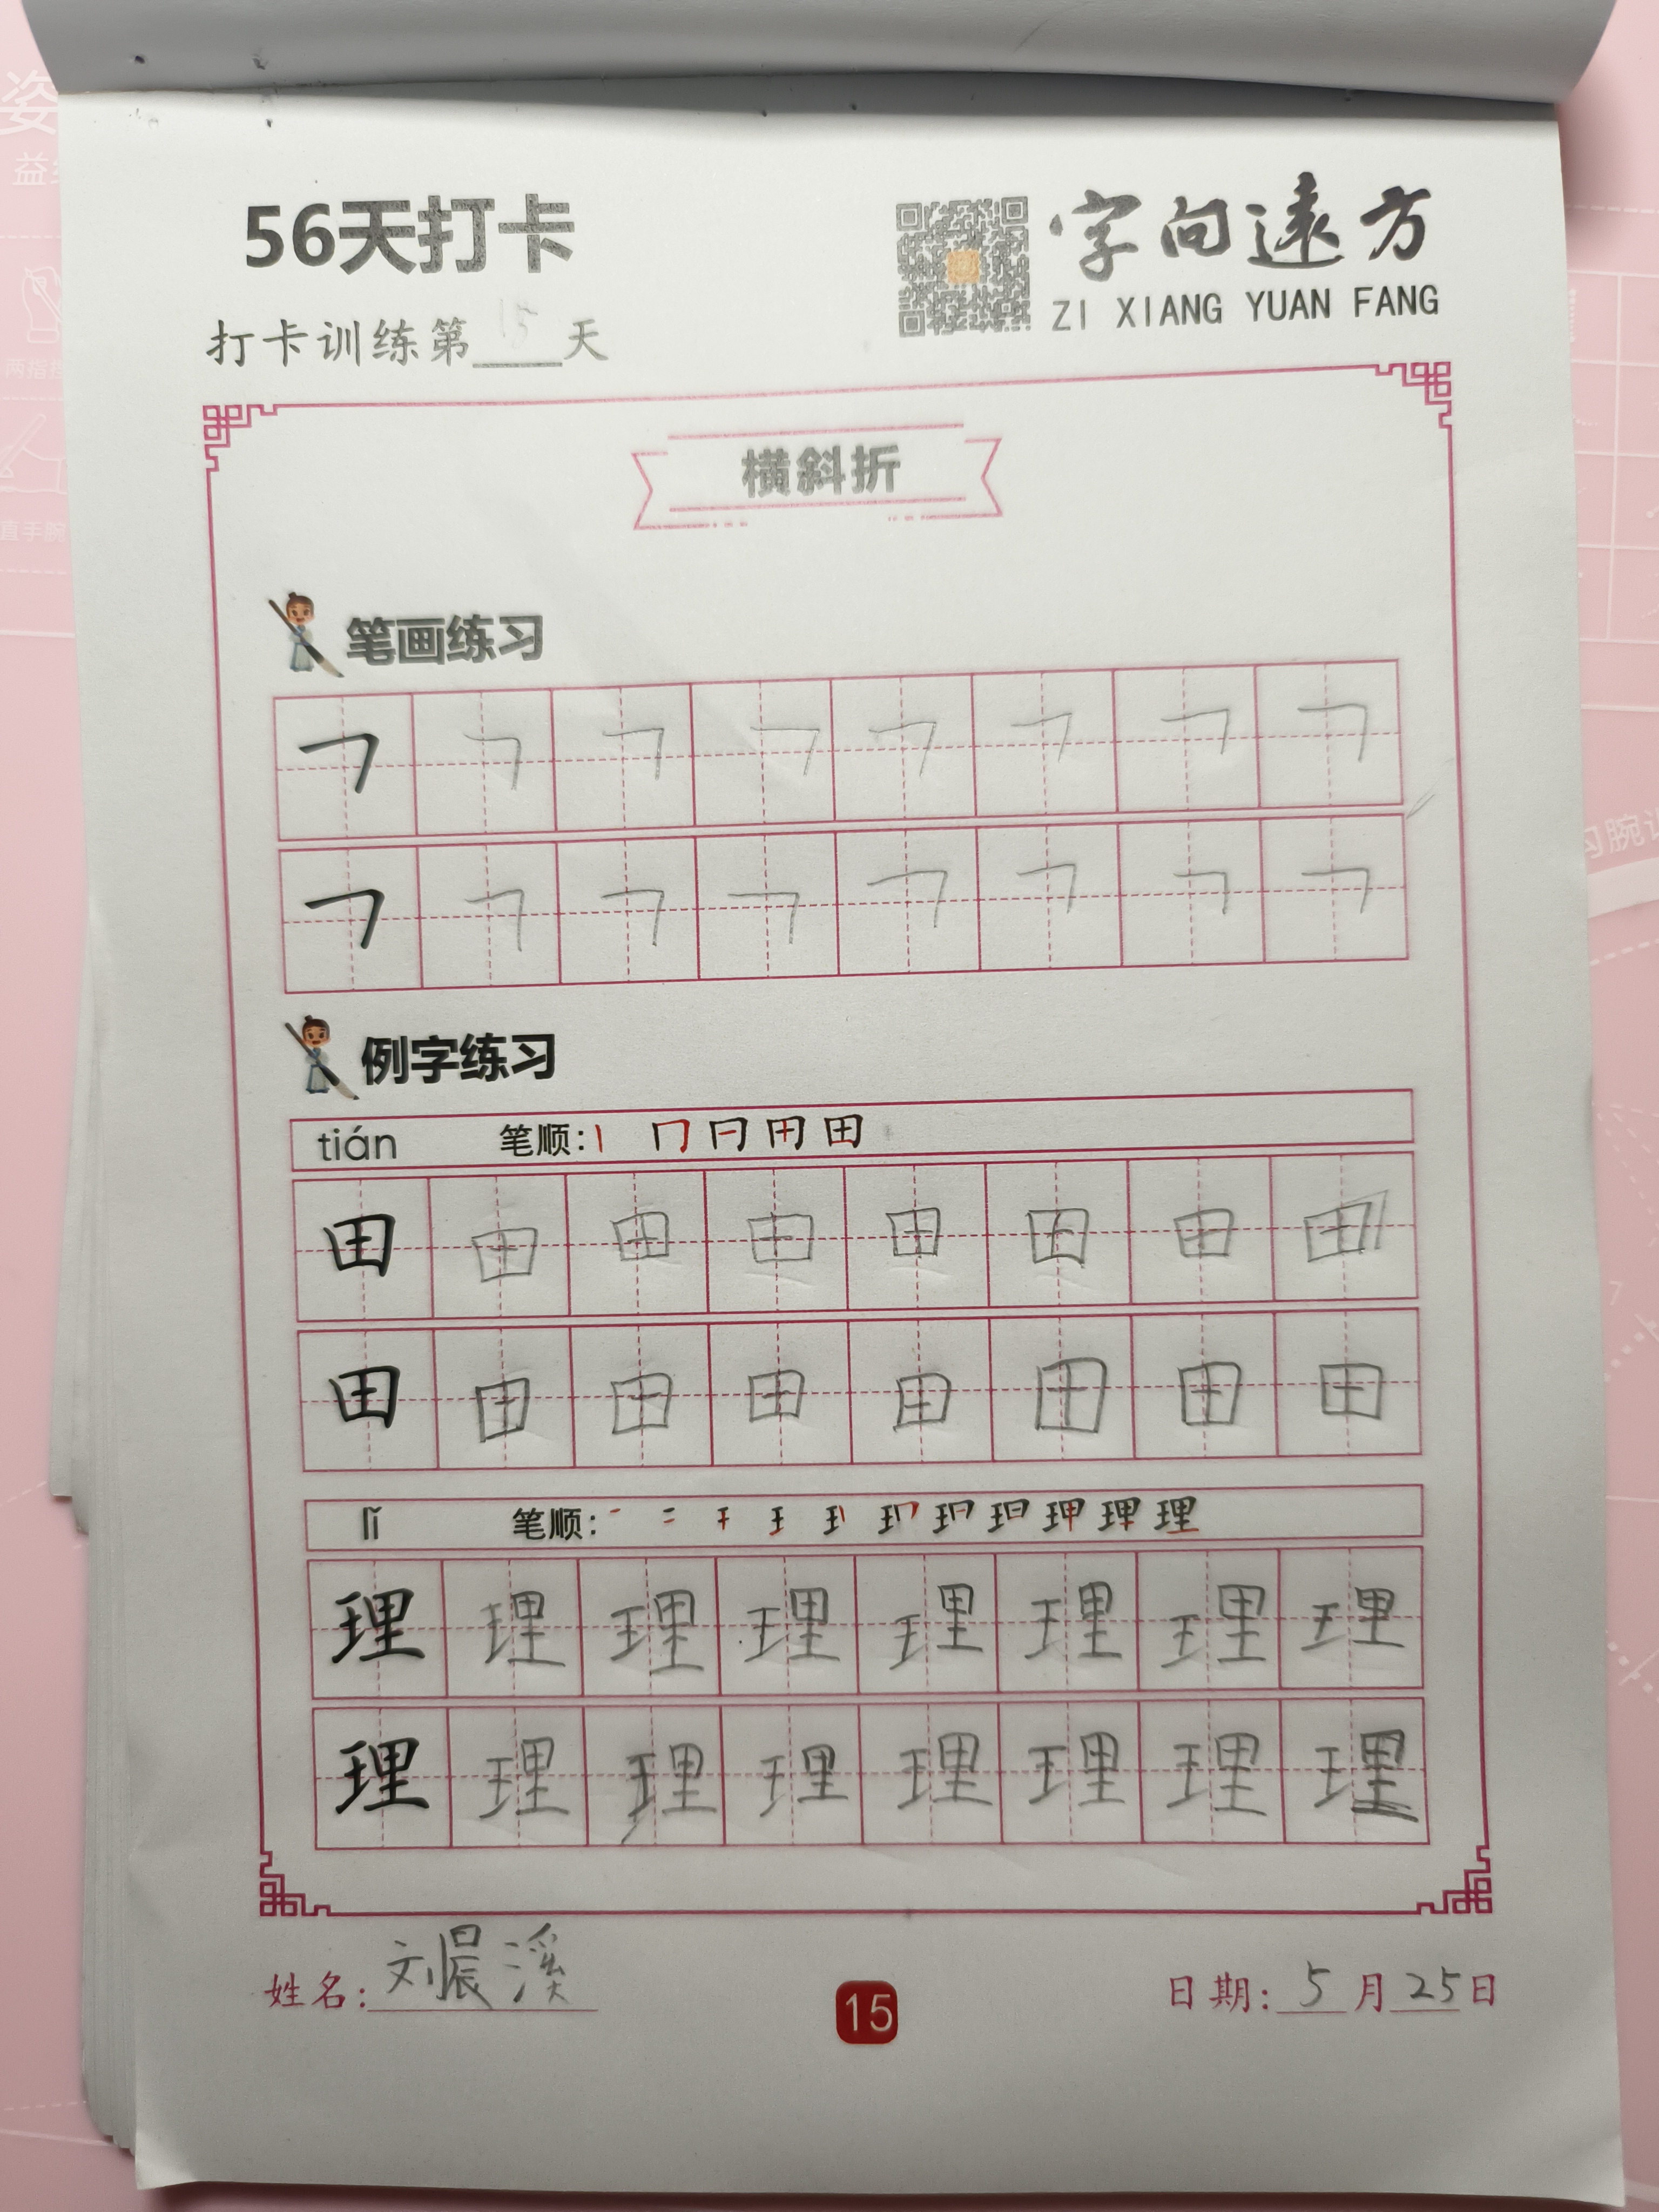 56天打卡
字向遠方
ZI XIANG YUAN FANG
打卡训练第15天
横斜折
笔画练习
例字练习
tián 笔顺:
田田田田田田田田
田田田田田田田田
lǐ 笔顺:
理理理理理理理理
理理理理理理理理
姓名:刘晨溪
15
日期:5月25日
姿
益
两指
直手腕
习腕
7